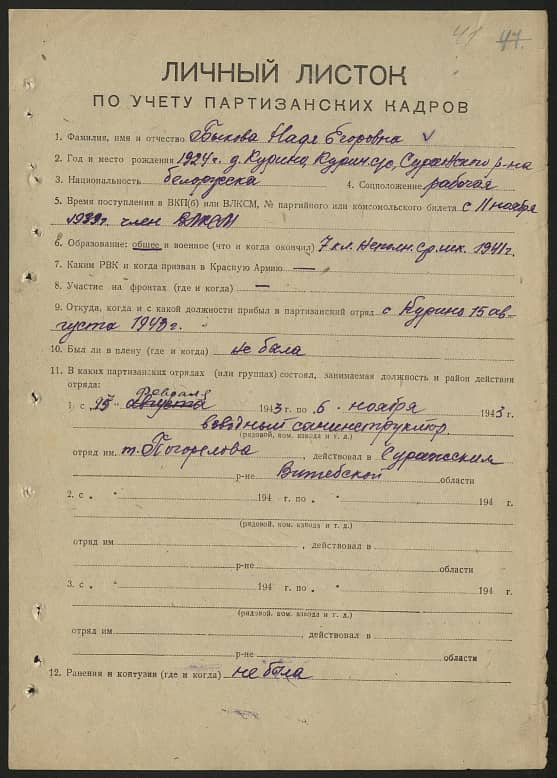 41 47.
ЛИЧНЫЙ ЛИСТОК
ПО УЧЕТУ ПАРТИЗАНСКИХ КАДРОВ
1. Фамилия, имя и отчество Быкова Надя Егоровна
2. Год и место рождения 1924 г. д. Курино, Курин. с/с, Суражского р-на
3. Национальность белоруска 4. Соцположение рабочая
5. Время поступления в ВКП(б) или ВЛКСМ, № партийного или комсомольского билета с 11 ноября
1939 г. член ВЛКСМ
6. Образование: общее и военное (что и когда окончил) 7 кл. Неполн. ср. шк. 1941 г.
7. Каким РВК и когда призван в Красную Армию —
8. Участие на фронтах (где и когда) —
9. Откуда, когда и с какой должности прибыл в партизанский отряд с Курино 15 ав-
густа 1943 г.
10. Был ли в плену (где и когда) не была
11. В каких партизанских отрядах (или группах) состоял, занимаемая должность и район действия
отряда:
февраля
1. с „ 25 " августа 1943 г. по „ 6 " ноября 1943 г.
взводным санинструктор.
(рядовой, ком. взвода и т. д.)
отряд им т. Погорелова, действовал в Суражским
р-не Витебской области
2. с „ " 194 г. по „ " 194 г.
(рядовой, ком. взвода и т. д.)
отряд им , действовал в
р-не области
3. с „ " 194 г. по „ " 194 г.
(рядовой, ком. взвода и т. д.)
отряд им , действовал в
р-не области
12. Ранения и контузии (где и когда) не была